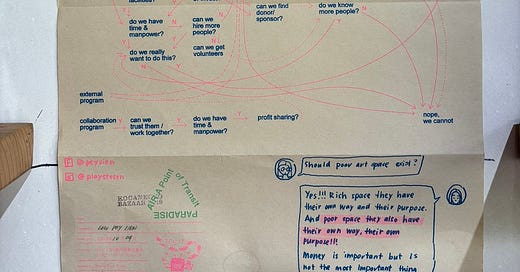 do we have
time &
manpower?
can we
hire more
people?
can we find
donor/
sponsor?
do we know
more people?
Y
N
do we really
want to do this?
can we get
volunteers
Y
N
external
program
collaboration
program
can we
trust them /
work together?
do we have
time &
manpower?
profit sharing?
nope,
we cannot
AIR A Point of Transit
PARADISE
KOGANEC
BAZAAR
Should poor art space exist?
Yes!!! Rich space they have
their own way and their purpose.
And poor space they also have
their own way, their own
purpose!!!
Money is important but is
not the most important thing